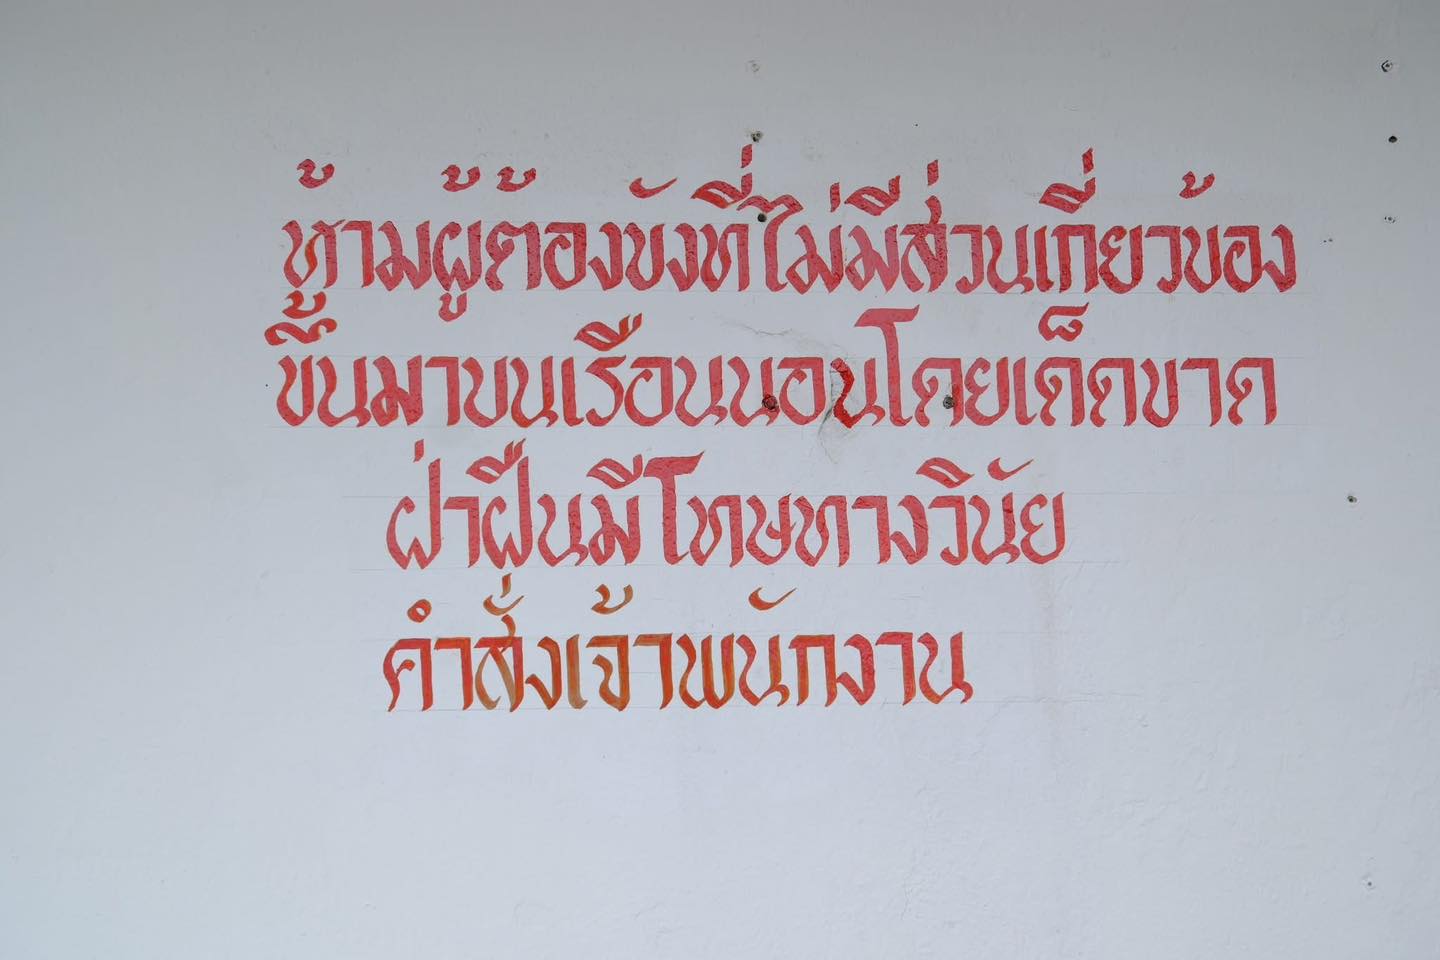 ห้ามผู้ต้องขังที่ไม่มีส่วนเกี่ยวข้อง
ขึ้นมาบนเรือนนอนโดยเด็ดขาด
ฝ่าฝืนมีโทษทางวินัย
คำสั่งเจ้าพนักงาน